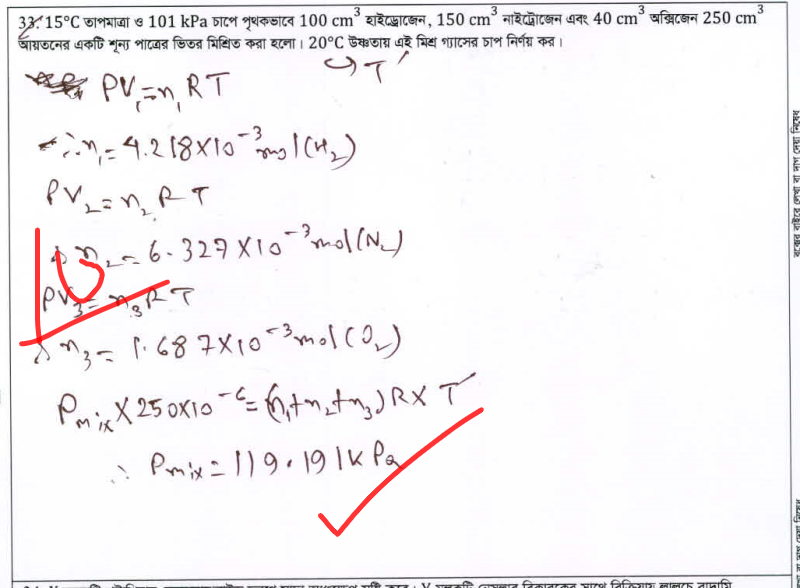 33. 15°C তাপমাত্রা ও 101 kPa চাপে পৃথকভাবে 100 cm³ হাইড্রোজেন, 150 cm³ নাইট্রোজেন এবং 40 cm³ অক্সিজেন 250 cm³
আয়তনের একটি শূন্য পাত্রের ভিতর মিশ্রিত করা হলো। 20°C উষ্ণতায় এই মিশ্র গ্যাসের চাপ নির্ণয় কর।
↪ T′
PV₁=n₁RT
∴n₁=4.218×10⁻³mol(H₂)
PV₂=n₂RT
∴ n₂=6.327×10⁻³mol(N₂)
PV₃=n₃RT
∴ n₃=1.687×10⁻³mol(O₂)
Pmix×250×10⁻⁶=(n₁+n₂+n₃)R×T′
∴ Pmix=119.191kPa